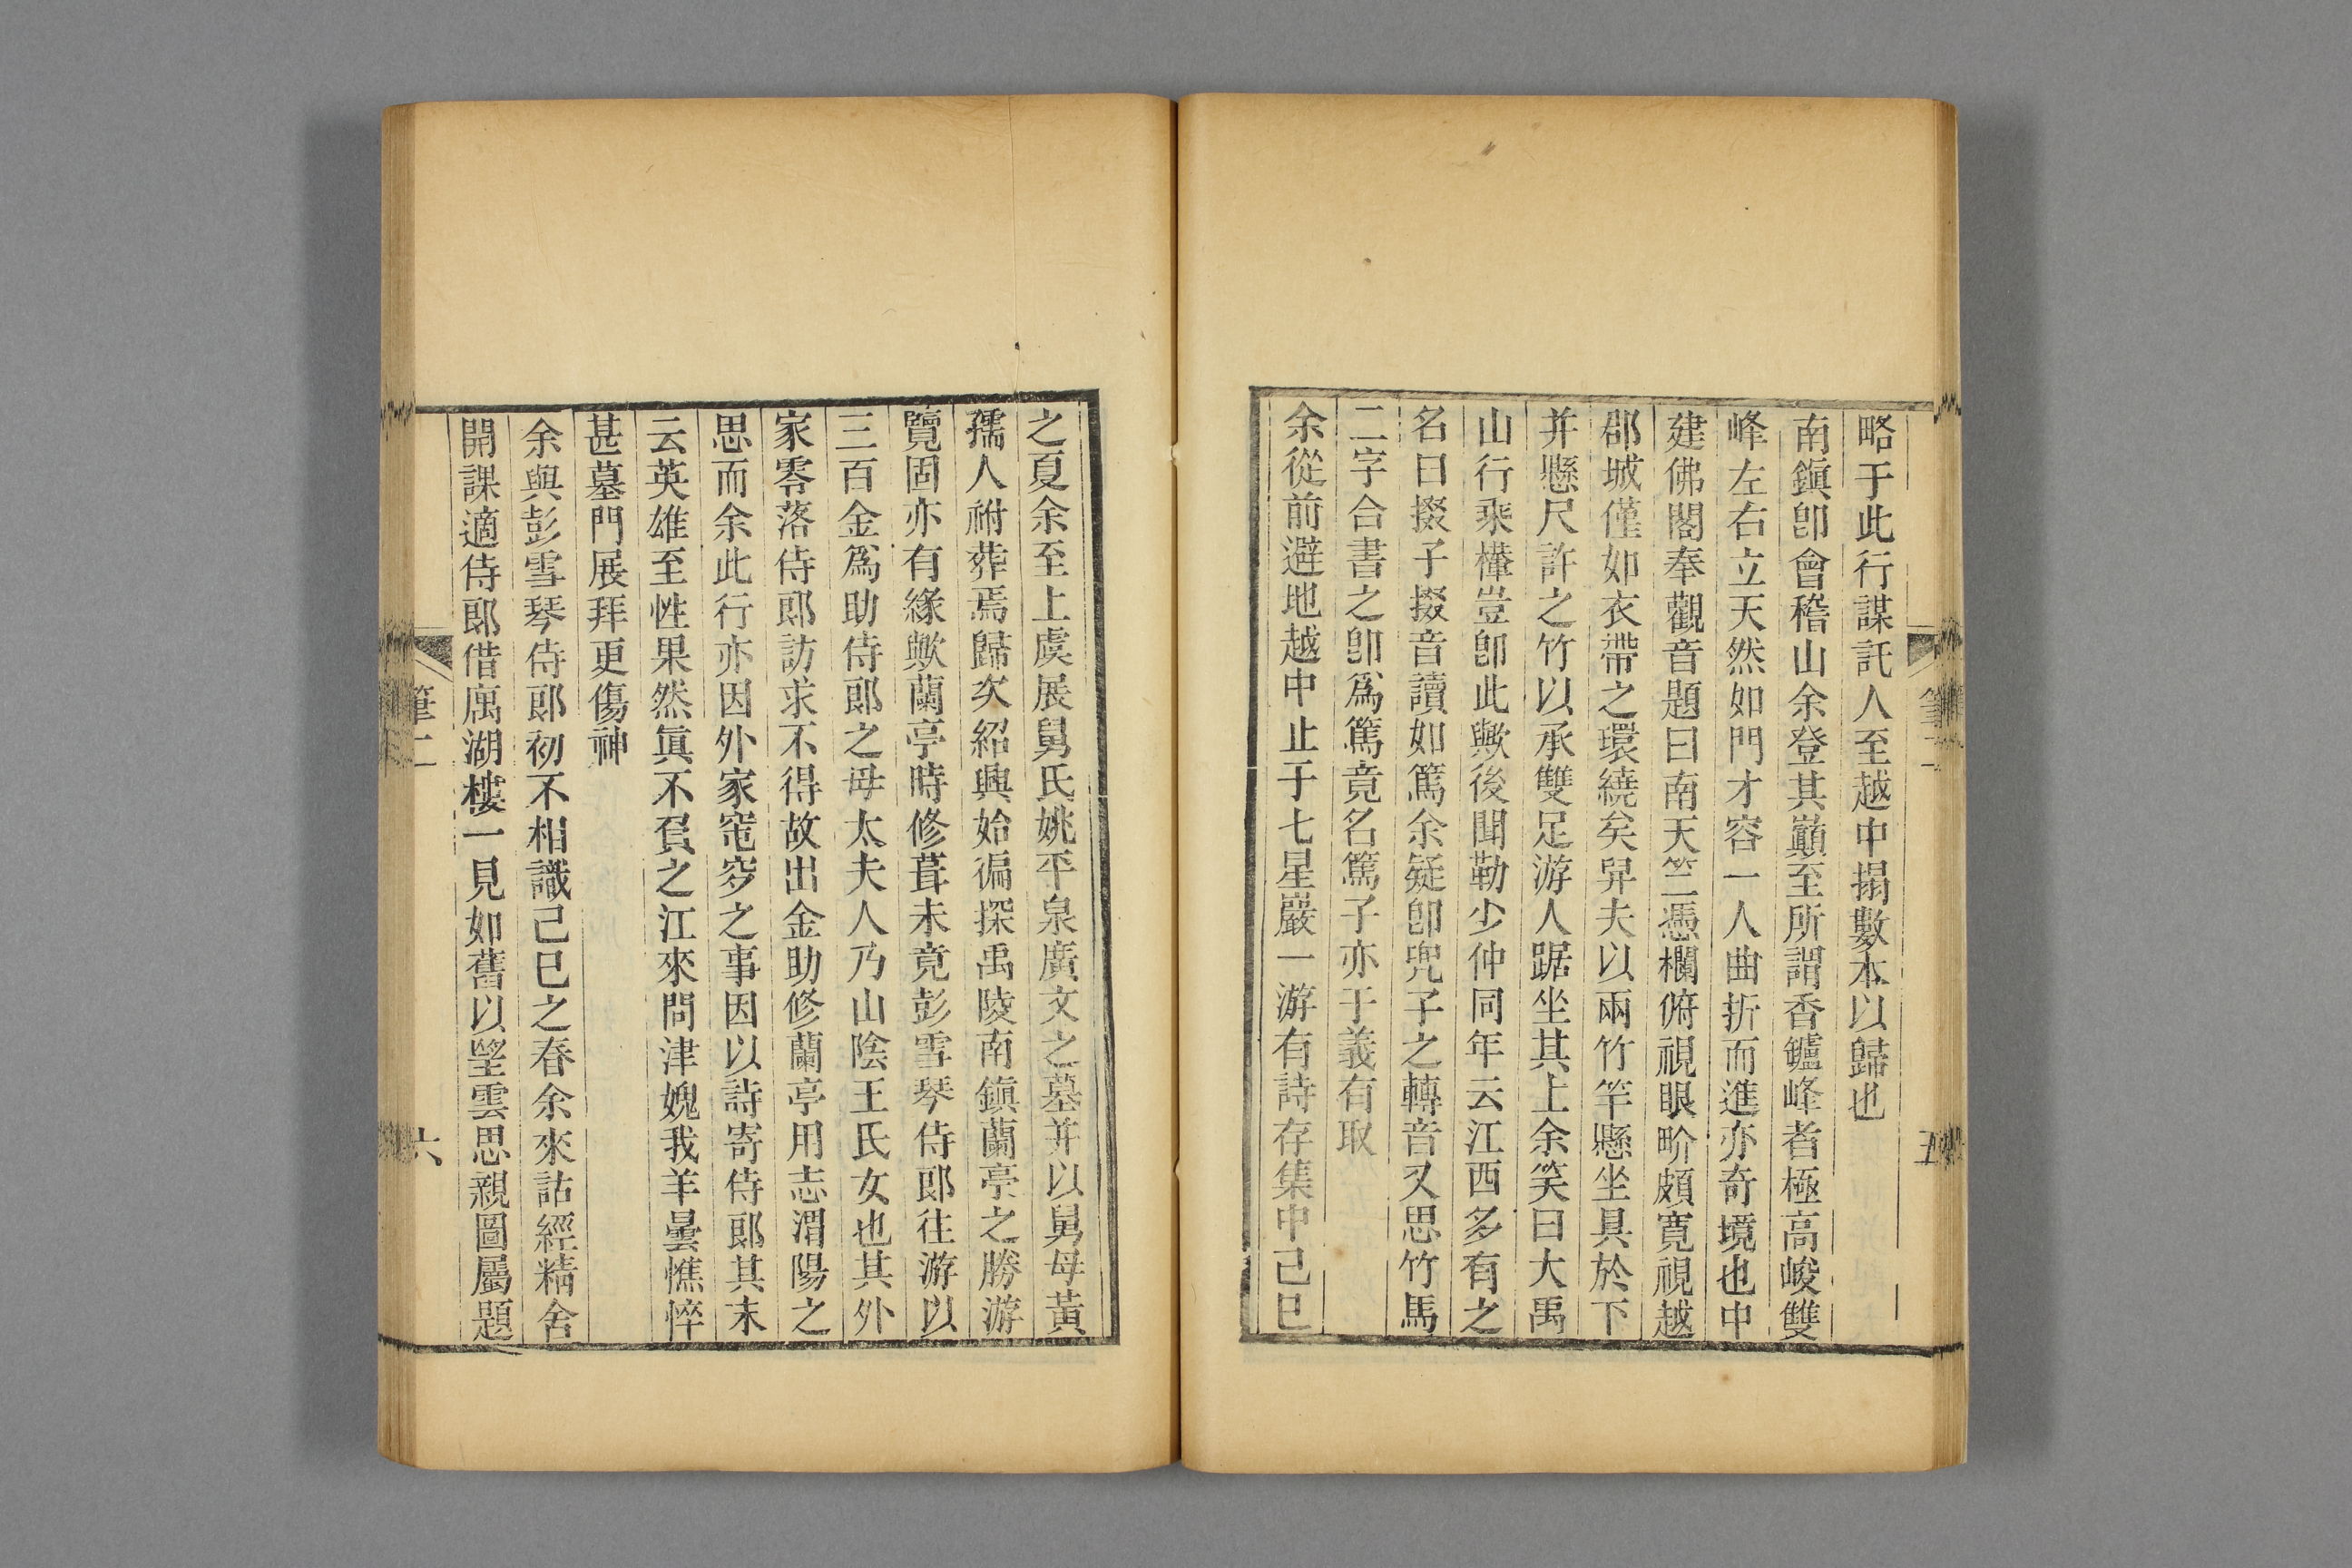 略于此行謀託人至越中搨數本以歸也
南鎭卽會稽山余登其巔至所謂香鑪峰者極高峻雙
峰左右立天然如門才容一人曲折而進亦奇境也中
建佛閣奉觀音題曰南天竺憑欄俯視眼畍頗寬視越
郡城僅如衣帶之環繞矣舁夫以兩竹竿懸坐具於下
并懸尺許之竹以承雙足游人踞坐其上余笑曰大禹
山行乘樺豈卽此歟後聞勒少仲同年云江西多有之
名曰掇子掇音讀如篤余疑卽兜子之轉音又思竹馬
二字合書之卽爲篤竟名篤子亦于義有取
余從前避地越中止于七星巖一游有詩存集中己巳
之夏余至上虞展舅氏姚平泉廣文之墓并以舅母黃
孺人祔葬焉歸次紹興始徧探禹陵南鎭蘭亭之勝游
覽固亦有緣歟蘭亭時修葺未竟彭雪琴侍郎往游以
三百金爲助侍郎之母太夫人乃山陰王氏女也其外
家零落侍郎訪求不得故出金助修蘭亭用志渭陽之
思而余此行亦因外家窀穸之事因以詩寄侍郎其末
云英雄至性果然眞不負之江來問津媿我羊曇憔悴
甚墓門展拜更傷神
余與彭雪琴侍郎初不相識己巳之春余來詁經精舍
開課適侍郎借寓湖樓一見如舊以望雲思親圖屬題
筆二
六